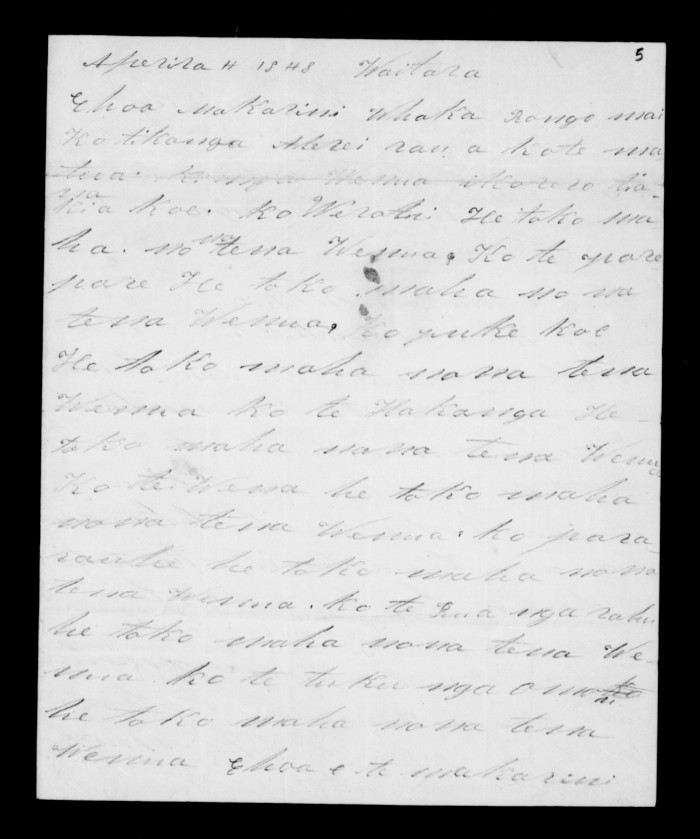 5
Aperira 4 1848 Waitara
Ehoa Makarini Whaka Rongo mai
Ko tikanga Merei rau, a kote ma
tua. Wenua Korero tia
na
kia koe. ko Werohi He toko ma
ha. no na tena Wenua, Ko te pare
pare He toko maha no na
tena Wenua, Ko puke koe
He toko maha nona tena
Wenua ko te Hakanga He
toko maha nona tena Wenua
Ko te Wena he toko maha
nona tena Wenua. ko para
rauhe he toko maha nona
tena Wenua. ko te Rua nga rahu
he toko maha nona tena We-
nua ko te tuku nga o
he toko maha nona tena
Wenua Ehoa e te makarini